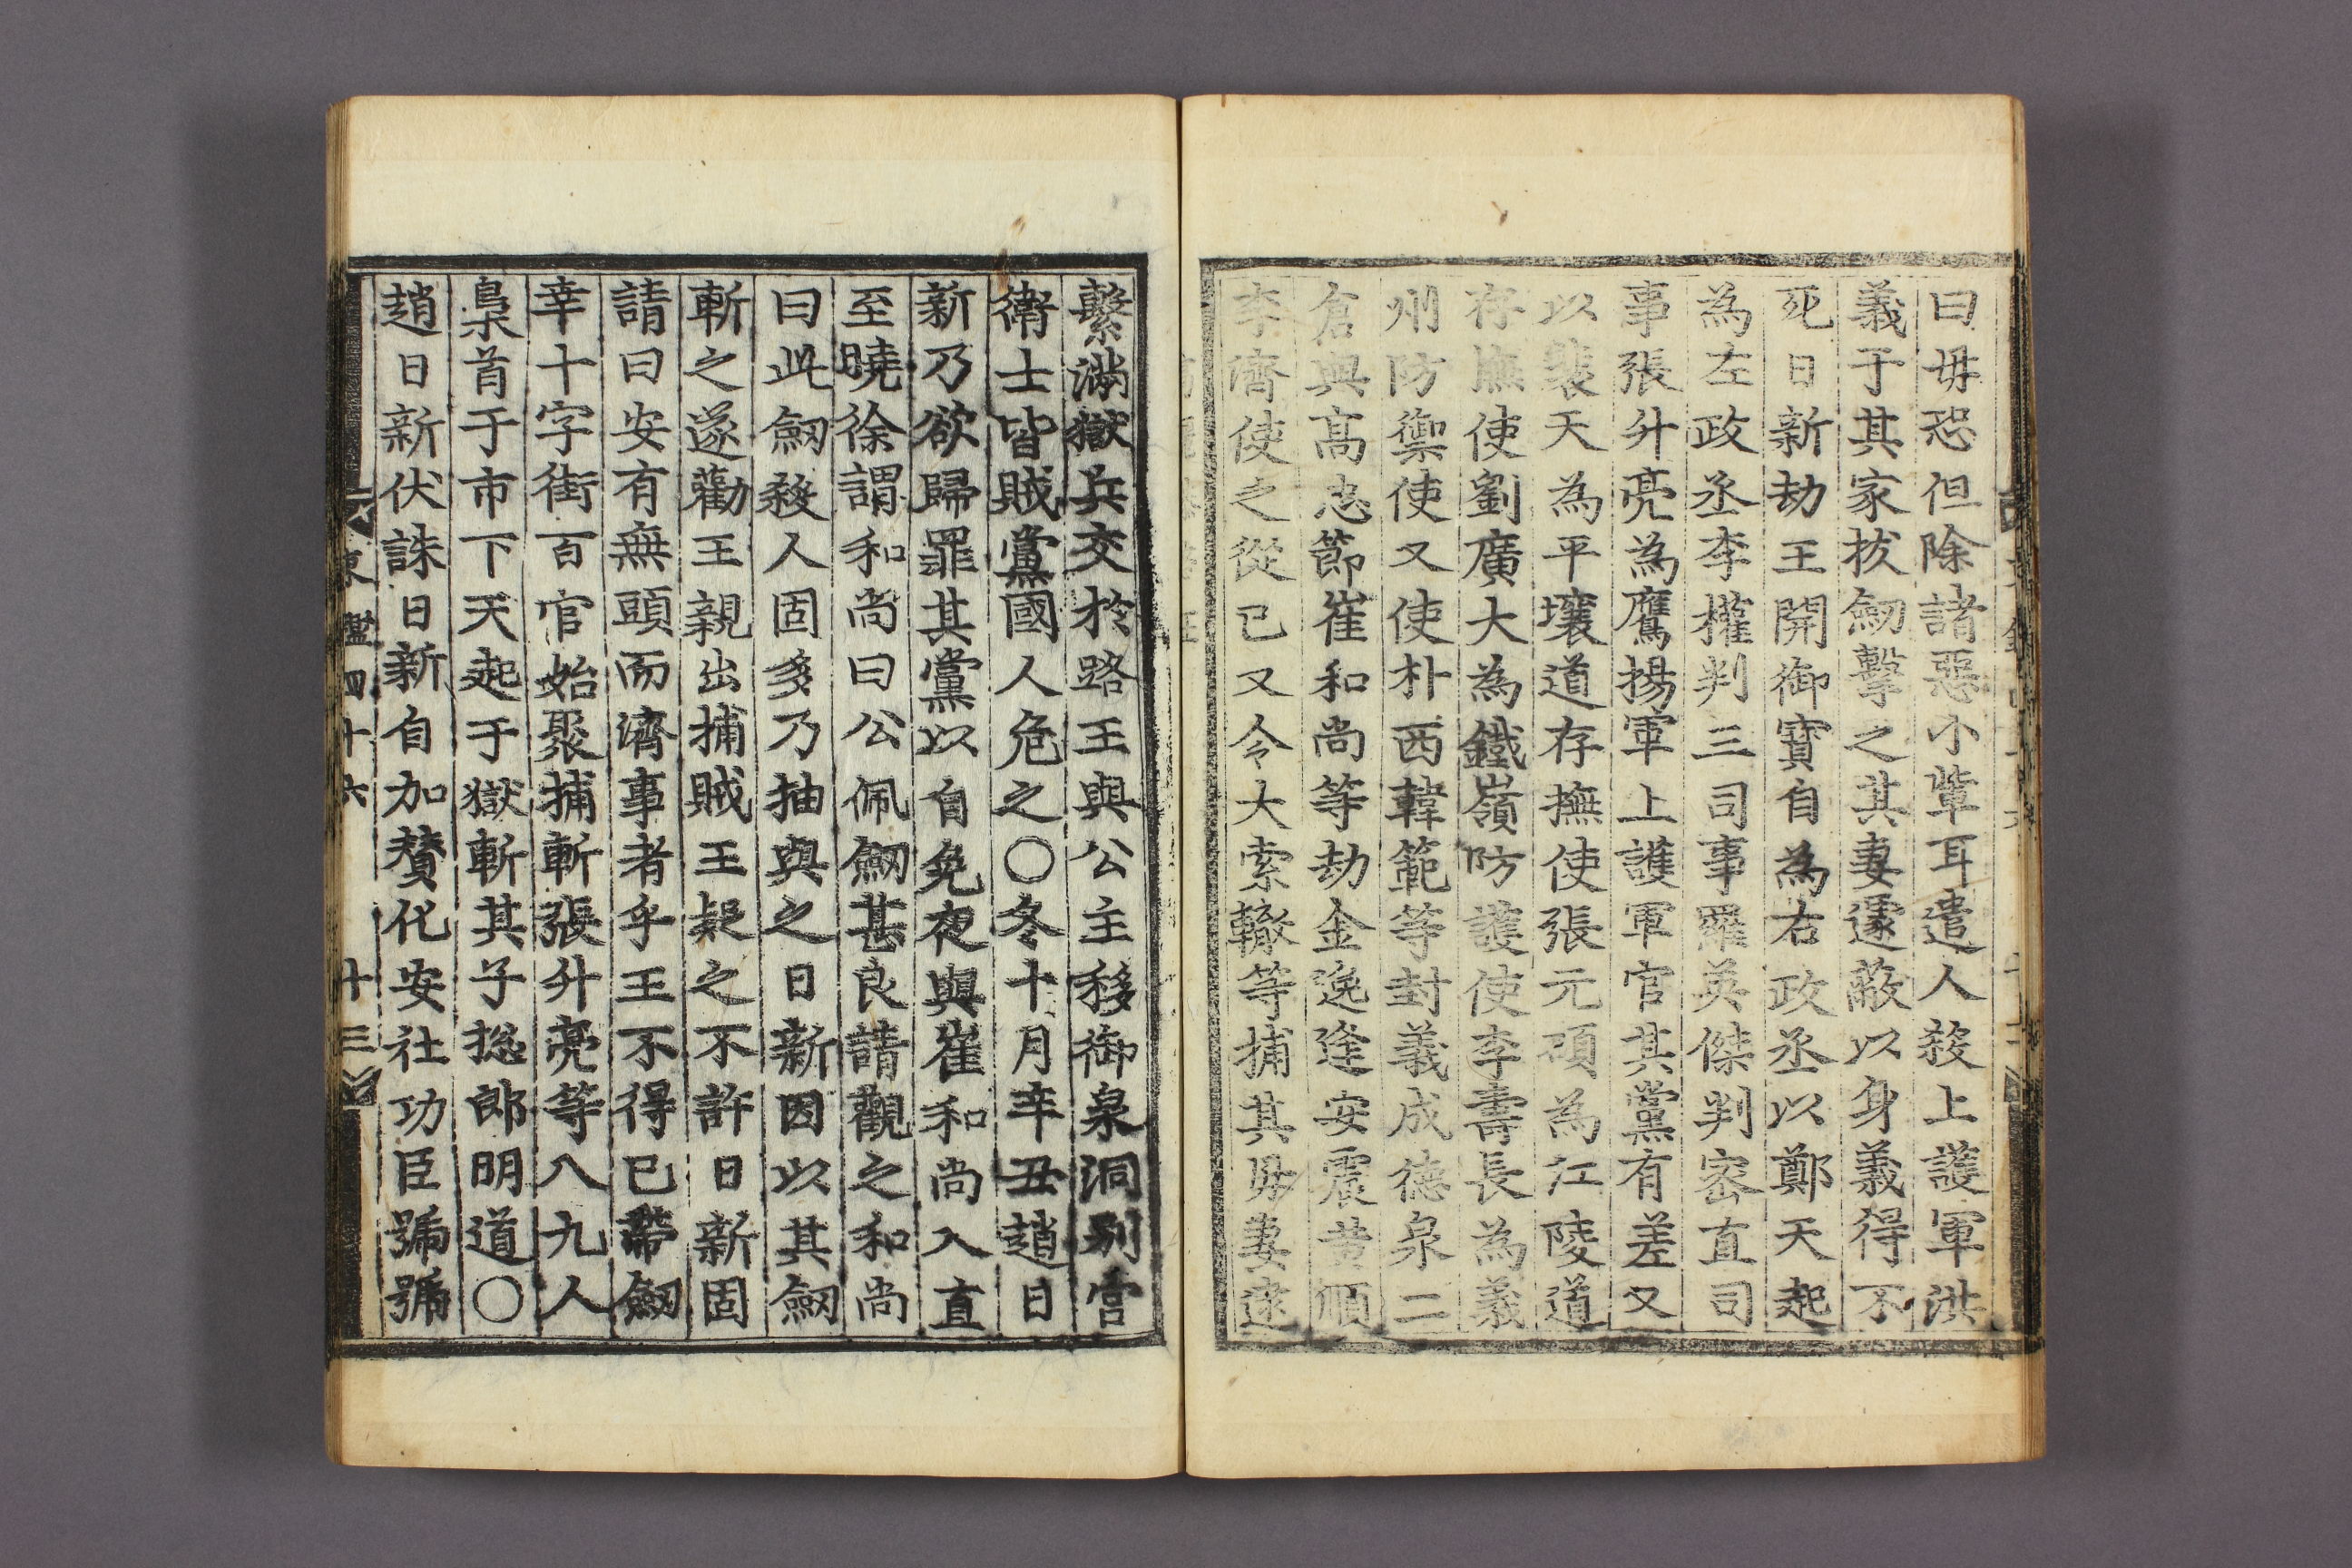 曰毋恐但除諸惡小輩耳遣人殺上護軍洪
義于其家拔劒擊之其妻遽蔽以身義得不
死日新劫王開御寶自為右政丞以鄭天起
為左政丞李權判三司事羅英傑判密直司
事張升亮為鷹揚軍上護軍官其黨有差又
以裴天為平壤道存撫使張元碩為江陵道
存撫使劉廣大為鐵嶺防護使李壽長為義
州防禦使又使朴西韓範等封義成德泉二
倉與高忠節崔和尚等劫金逸逢安震黃順
李濟使之從已又令大索轍等捕其母妻逮
繫滿獄兵交於路王與公主移御泉洞別宮
衛士皆賊黨國人危之○冬十月辛丑趙日
新乃欲歸罪其黨以自免夜與崔和尚入直
至曉徐謂和尚曰公佩劒甚良請觀之和尚
曰此劒殺人固多乃抽與之日新因以其劒
斬之遂勸王親出捕賊王疑之不許日新固
請曰安有無頭而濟事者乎王不得已帶劒
幸十字街百官始聚捕斬張升亮等八九人
梟首于市下天起于獄斬其子摠郎明道○
趙日新伏誅日新自加贊化安社功臣號號
東鑑四十六 十三